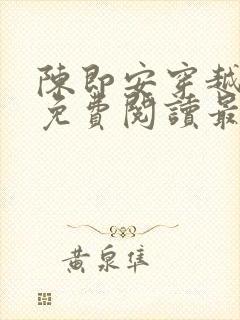 陳即安穿越
免費閱讀最
黃泉隼